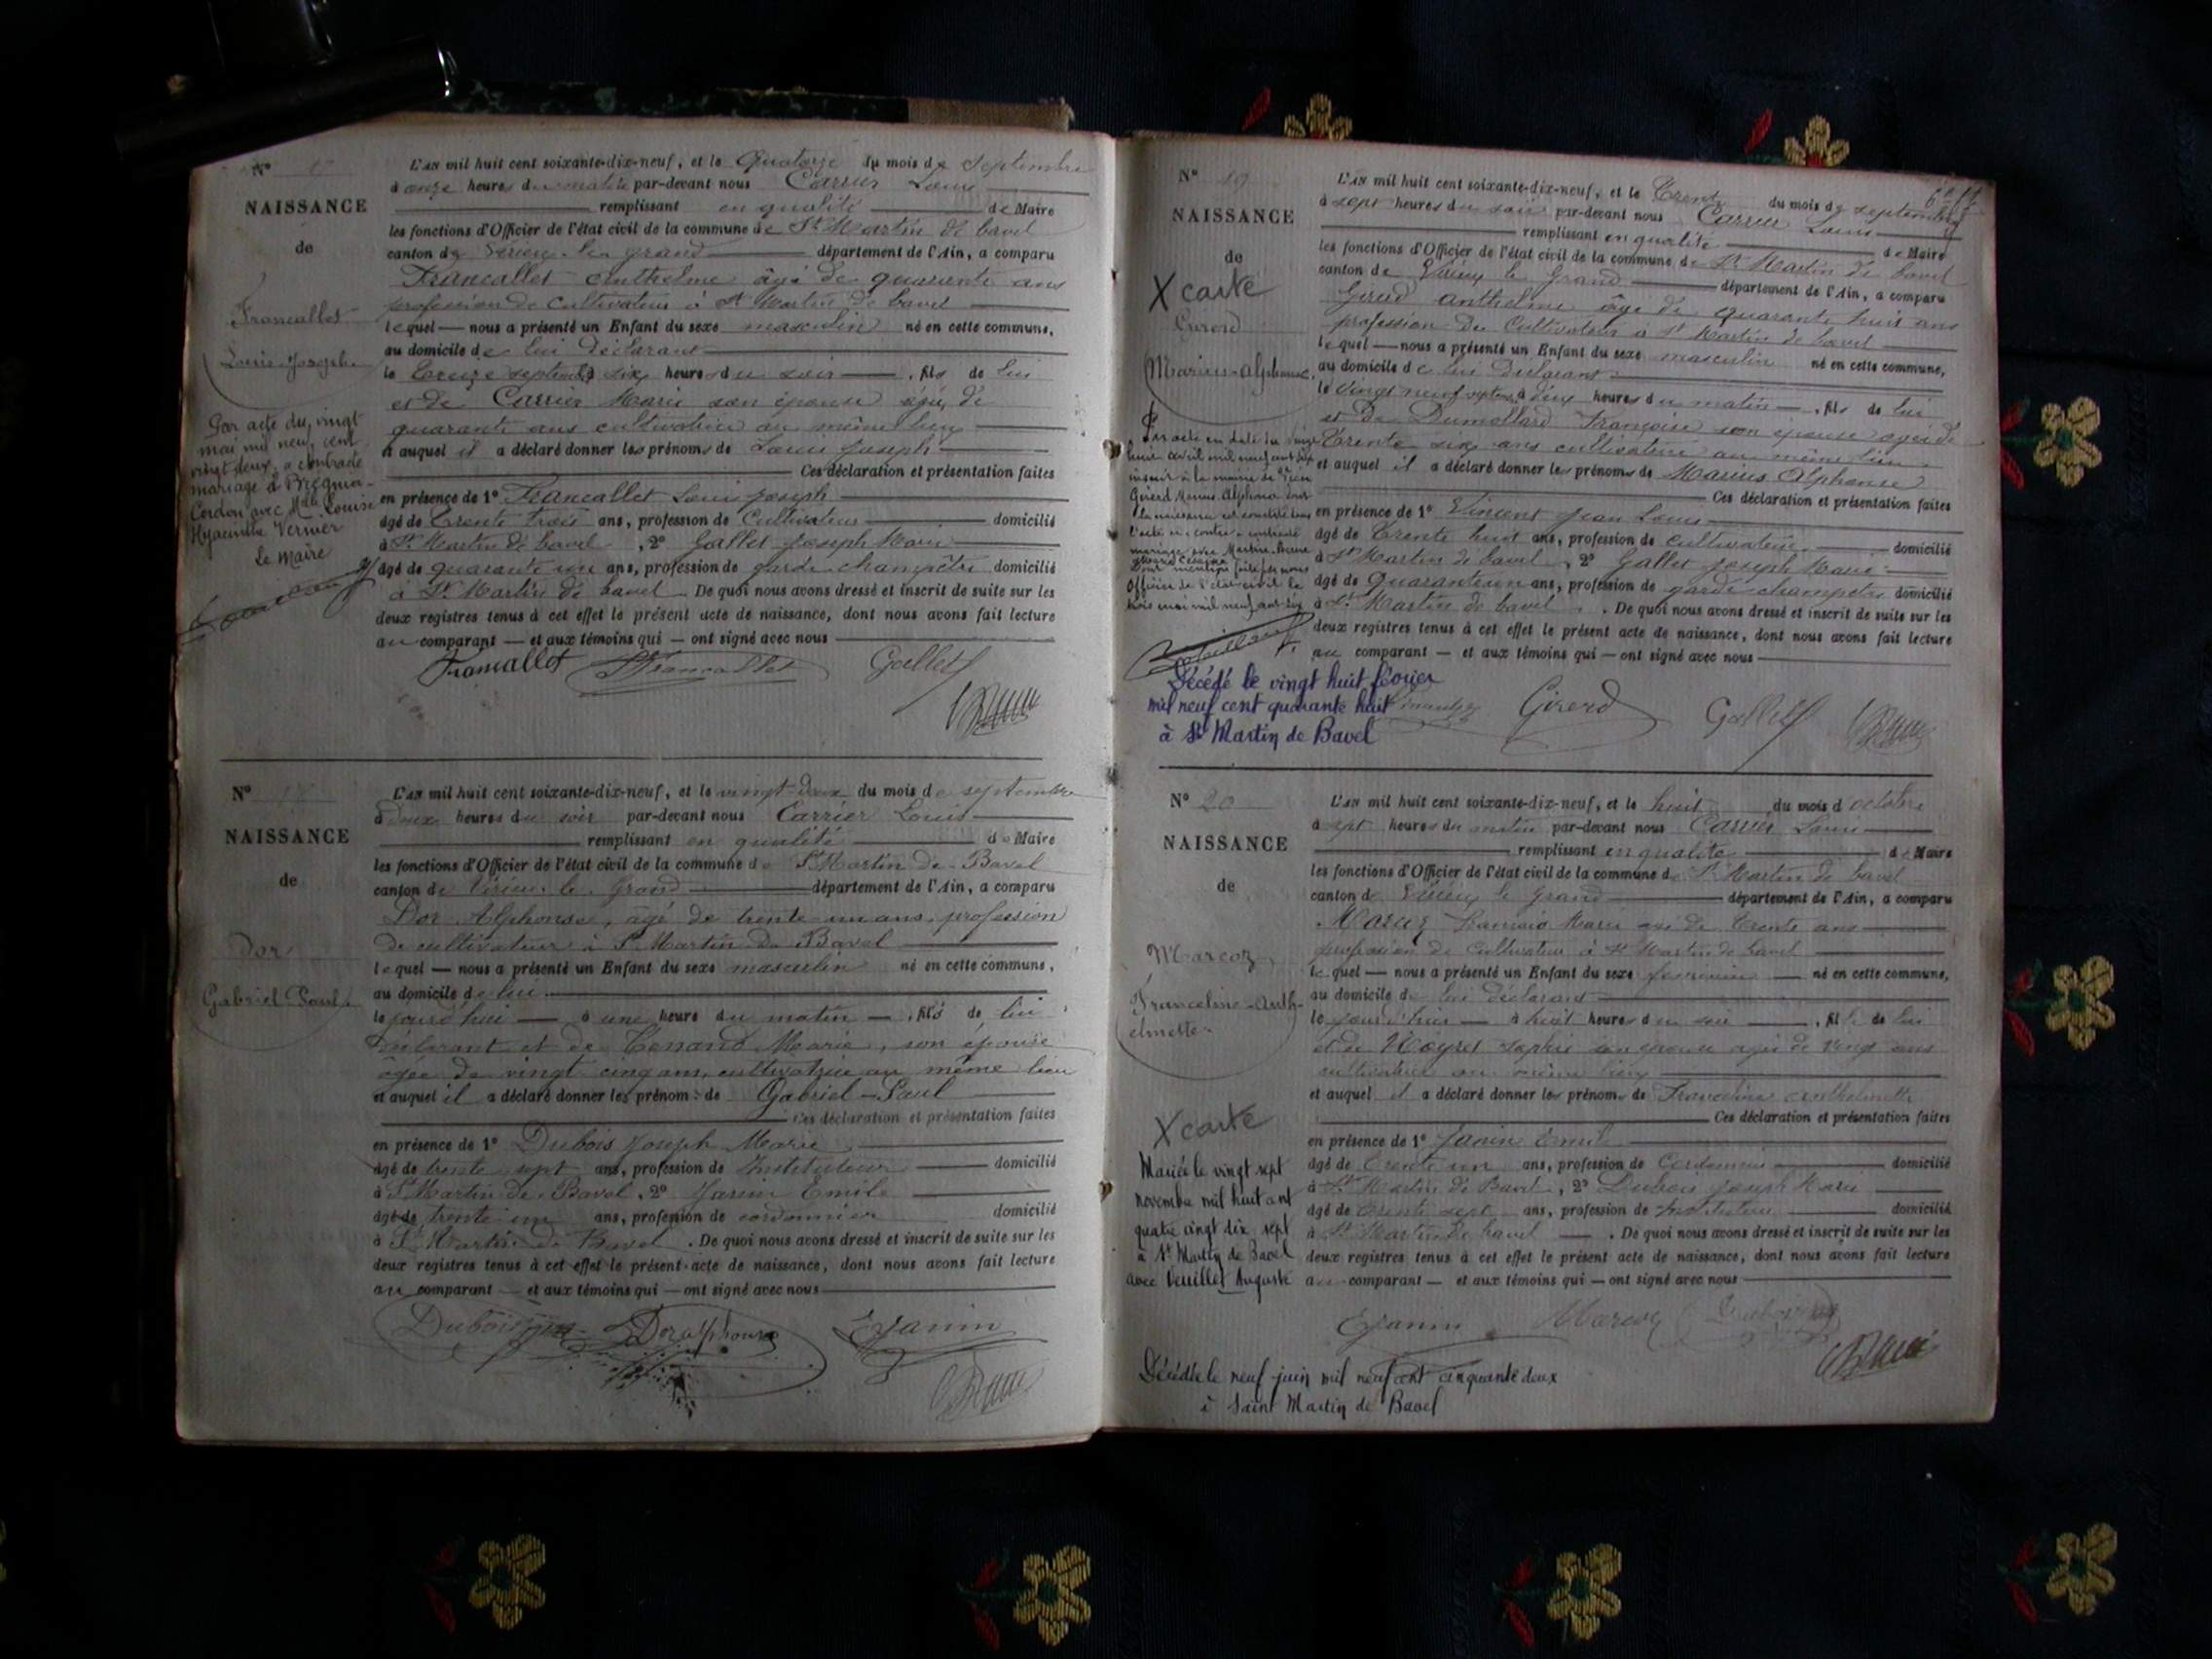 N°
NAISSANCE
de
Francallet
Louis-Joseph
Par acte du vingt
mai mil neuf cent
vingt deux, a contracté
mariage à Brégnier-
Cordon avec Mlle Louise
Hyacinthe Vernier
Le Maire
L'an mil huit cent soixante-dix-neuf, et le Quatorze du mois de Septembre
à onze heures du matin par-devant nous Carrier Louis
remplissant en qualité de Maire
les fonctions d'Officier de l'état civil de la commune de St Martin de bavel
canton de Virieu le grand département de l'Ain, a comparu
Francallet Anthelme âgé de quarante ans
profession de cultivateur à St Martin de bavel
lequel nous a présenté un Enfant du sexe masculin né en cette commune,
au domicile de lui déclarant
le treize septembre six heures du soir , fils de lui
et de Carrier Marie son épouse âgée de
quarante ans cultivatrice au même lieu
et auquel il a déclaré donner les prénoms de Louis Joseph
Ces déclaration et présentation faites
en présence de 1° Francallet Louis Joseph
âgé de trente trois ans, profession de Cultivateur domicilié
à St Martin de bavel , 2° Gallet Joseph Marie
âgé de quarante un ans, profession de garde champêtre domicilié
à St Martin de bavel . De quoi nous avons dressé et inscrit de suite sur les
deux registres tenus à cet effet le présent acte de naissance, dont nous avons fait lecture
au comparant et aux témoins qui ont signé avec nous
Francallet Francallet Gallet
N° 18
NAISSANCE
de
Dor
Gabriel Paul
L'an mil huit cent soixante-dix-neuf, et le vingt deux du mois de septembre
à deux heures du soir par-devant nous Carrier Louis
remplissant en qualité de Maire
les fonctions d'Officier de l'état civil de la commune de St Martin de Bavel
canton de Virieu le Grand département de l'Ain, a comparu
Dor Alphonse, âgé de trente un ans, profession
de cultivateur à St Martin de Bavel
lequel nous a présenté un Enfant du sexe masculin né en cette commune,
au domicile de lui
le jourd'hui à une heure du matin , fils de lui
déclarant et de Tenand Marie, son épouse
âgée de vingt cinq ans, cultivatrice au même lieu
et auquel il a déclaré donner les prénoms de Gabriel-Paul
Ces déclaration et présentation faites
en présence de 1° Dubois Joseph Marie
âgé de trente sept ans, profession de Instituteur domicilié
à St Martin de Bavel, 2° Janin Emile
âgé de trente un ans, profession de cordonnier domicilié
à St Martin de Bavel . De quoi nous avons dressé et inscrit de suite sur les
deux registres tenus à cet effet le présent acte de naissance, dont nous avons fait lecture
au comparant et aux témoins qui ont signé avec nous
Dubois Dor alphonse EJanin
N° 19
NAISSANCE
de
X carte
Girerd
Marius-Alphonse
Décédé le vingt huit février
mil neuf cent quarante huit
à St Martin de Bavel
L'an mil huit cent soixante-dix-neuf, et le Trente du mois de septembre
à sept heures du soir par-devant nous Carrier Louis
remplissant en qualité de Maire
les fonctions d'Officier de l'état civil de la commune de St Martin de bavel
canton de Virieu le Grand département de l'Ain, a comparu
Girerd anthelme âgé de quarante huit ans
profession de Cultivateur à St Martin de bavel
lequel nous a présenté un Enfant du sexe masculin né en cette commune,
au domicile de lui déclarant
le vingt neuf septembre à deux heures du matin , fils de lui
et de Dumollard Françoise son épouse agée de
trente six ans cultivatrice au même lieu
et auquel il a déclaré donner les prénoms de Marius Alphonse
Ces déclaration et présentation faites
en présence de 1° Vincent Jean Louis
âgé de trente huit ans, profession de cultivateur domicilié
à St Martin de bavel , 2° Gallet Joseph Marie
âgé de quarante un ans, profession de garde champêtre domicilié
à St Martin de bavel . De quoi nous avons dressé et inscrit de suite sur les
deux registres tenus à cet effet le présent acte de naissance, dont nous avons fait lecture
au comparant et aux témoins qui ont signé avec nous
Girerd Gallet
N° 20
NAISSANCE
de
Marcoz
Franceline-Anth-
elmette
X carte
Mariée le vingt sept
novembre mil huit cent
quatre vingt dix sept
à St Martin de Bavel
avec Veuillet Auguste
L'an mil huit cent soixante-dix-neuf, et le huit du mois d'octobre
à sept heures du matin par-devant nous Carrier Louis
remplissant en qualité de Maire
les fonctions d'Officier de l'état civil de la commune de St Martin de bavel
canton de Virieu le Grand département de l'Ain, a comparu
Marcoz François Marie agé de trente ans
profession de Cultivateur à St Martin de bavel
lequel nous a présenté un Enfant du sexe féminin né en cette commune,
au domicile de lui déclarant
le jour d'hier à huit heures du soir , fille de lui
et de Sophie son épouse agée de vingt ans
cultivatrice au même lieu
et auquel il a déclaré donner les prénoms de Franceline anthelmette
Ces déclaration et présentation faites
en présence de 1° Janin Emile
âgé de trente un ans, profession de Cordonnier domicilié
à St Martin de Bavel, 2° Dubois Joseph Marie
âgé de trente sept ans, profession de Instituteur domicilié
à St Martin de bavel . De quoi nous avons dressé et inscrit de suite sur les
deux registres tenus à cet effet le présent acte de naissance, dont nous avons fait lecture
au comparant et aux témoins qui ont signé avec nous
EJanin Marcoz Dubois
Décédée le neuf juin mil neuf cent cinquante deux
à Saint Martin de Bavel